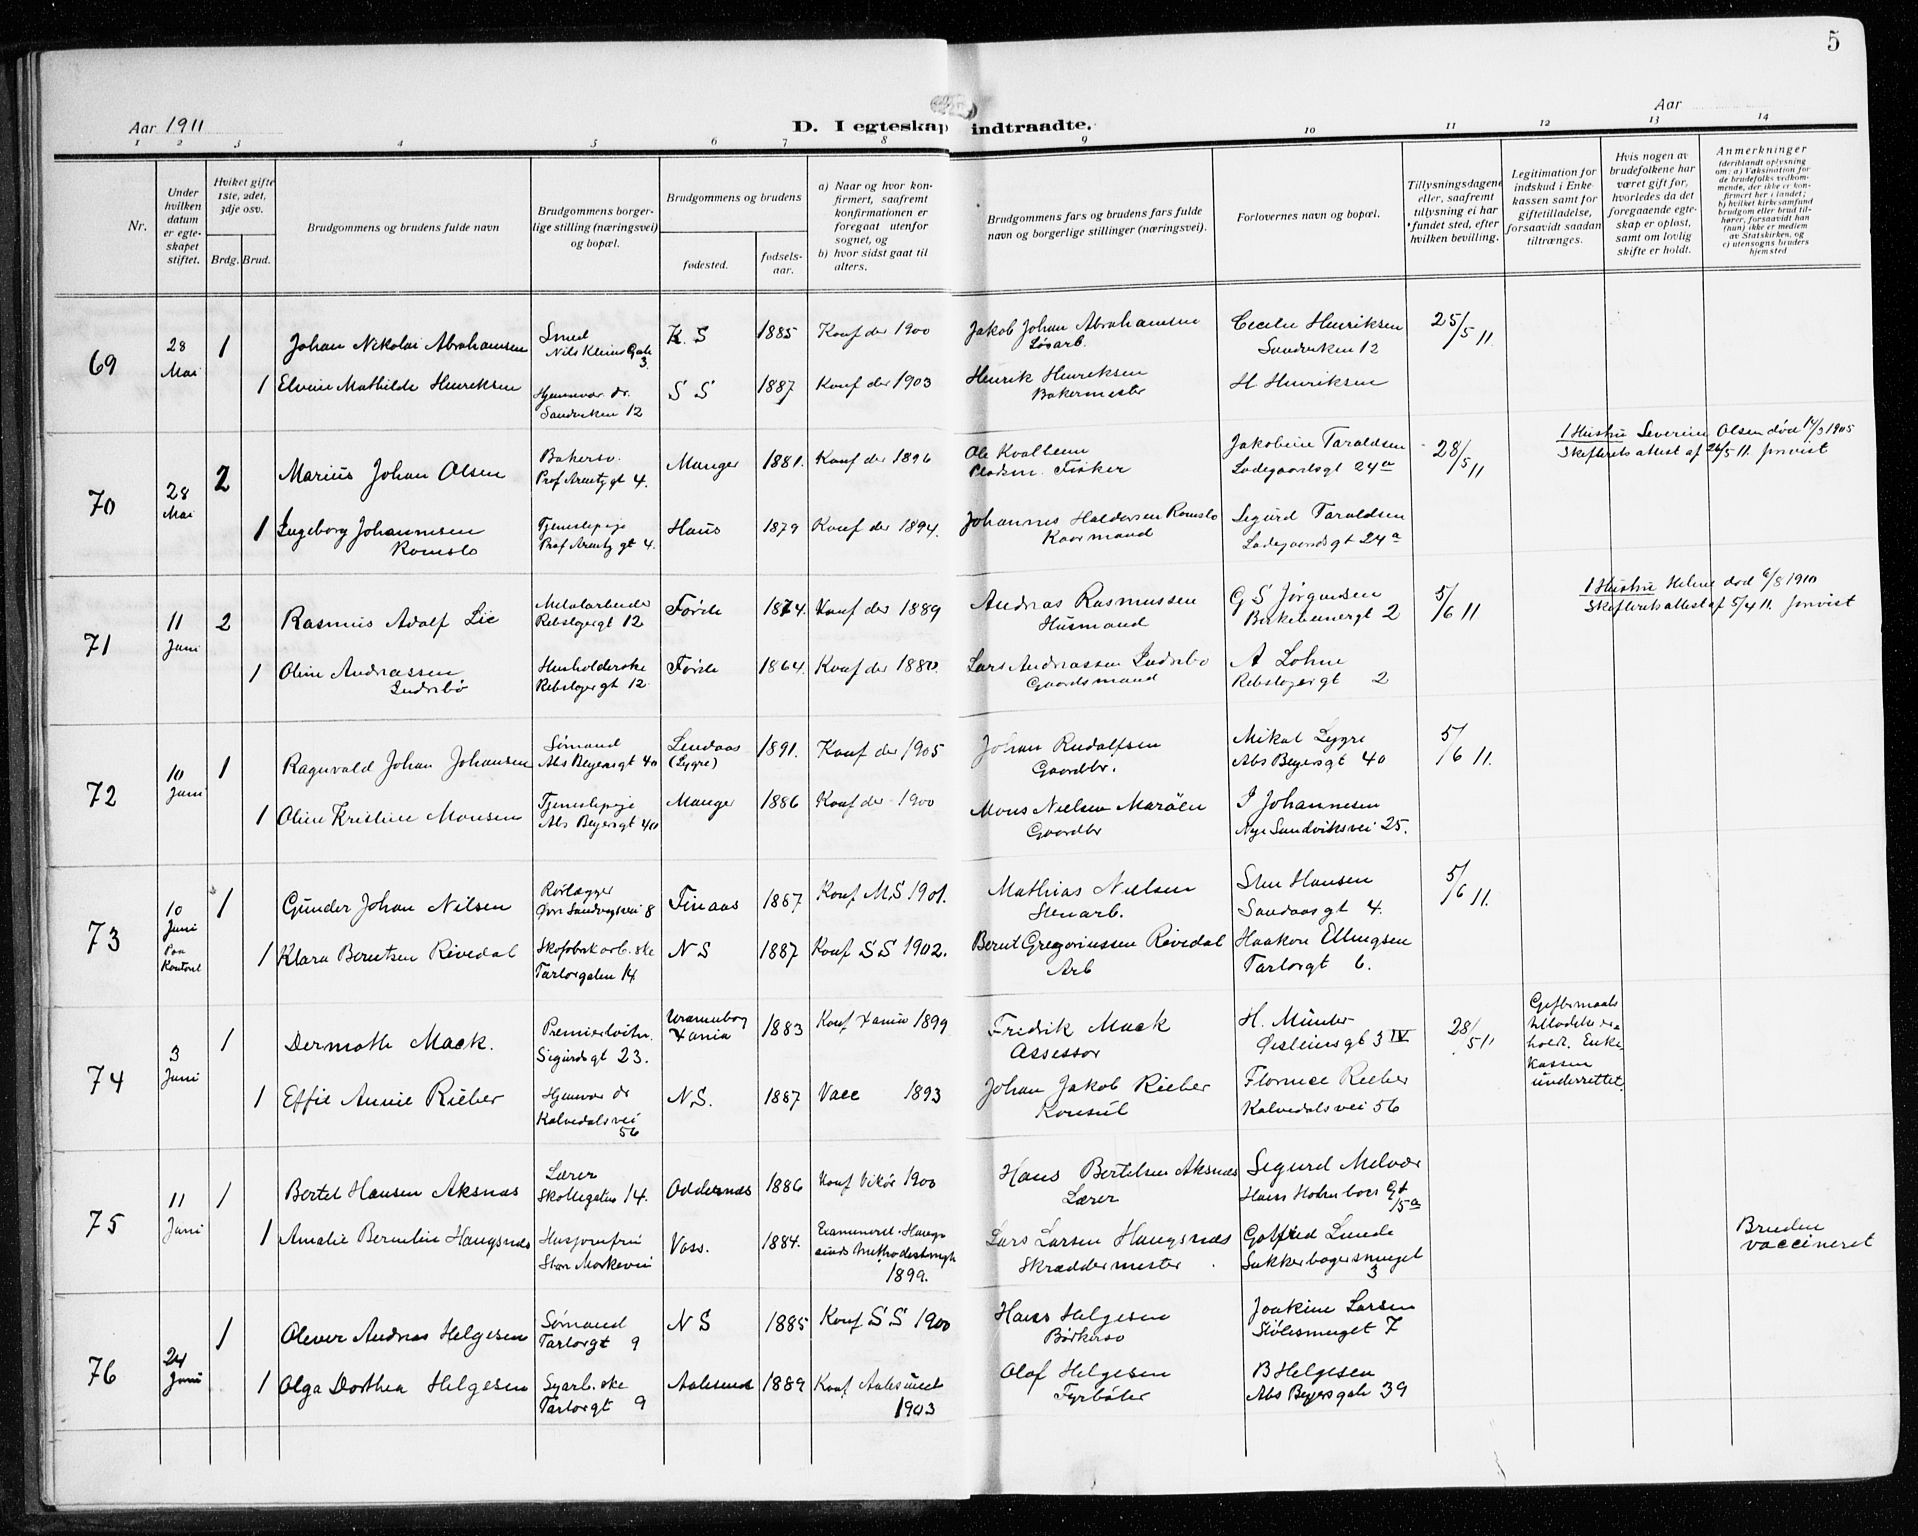 5
Aar 1911
D. I egteskap indtraadte.
Aar
1 2 3 4 5 6 7 8 9 10 11 12 13 14
Nr.
Under hvilken datum er egteskapet stiftet.
Hviket gifte 1ste, 2det, 3dje osv.
Brdg. Brud.
Brudgommens og brudens fulde navn
Brudgommens borgerlige stilling (næringsvei) og bopæl.
Brudgommens og brudens
fødested.
fødselsaar.
a) Naar og hvor konfirmert, saafremt konfirmationen er foregaat utenfor sognet, og
b) hvor sidst gaat til alters.
Brudgommens fars og brudens fars fulde navn og borgerlige stillinger (næringsvei).
Forlovernes navn og bopæl.
Tillysningsdagene eller, saafremt tillysning ei har fundet sted, efter hvilken bevilling.
Legitimation for indskud i Enkekassen samt for giftetilladelse, forsaavidt saadan tiltrænges.
Hvis nogen av brudefolkene har været gift før, hvorledes da det foregaaende egteskap er opløst, samt om lovlig skifte er holdt.
Anmerkninger
(deriblandt oplysning om: a) Vaksination for de brudefolks vedkommende, der ikke er konfirmert her i landet; b) hvilket kirkesamfund brudgom eller brud tilhører, forsaavidt han (hun) ikke er medlem av Statskirken, og c) utensogns bruders hjemsted
69 28 Mai 1 Johan Nikolai Abrahamsen Smed Nils Kleins Gate 3 K S 1885 Konf der 1900 Jakob Johan Abrahamsen Løsarb. Cecilie Henriksen Sandviken 12 25/5 11
1 Elvine Mathilde Henriksen Hjemmevær. dr. Sandviken 12 S S 1887 Konf der 1903 Henrik Henriksen Bakermester H Henriksen
70 28 Mai 2 Marius Johan Olsen Bakersv. Prof Arentz gt 4. Manger 1881. Konf der 1896 Ole Kvalheim Pladsm. Fisker Jakobine Taraldsen Ladegaardsgt 24a 28/5 11 1 Hustru Severine Olsen død 17/3 1905 Skifterets attest af 26/5 11. forvist
1 Ingeborg Johannesen Romslo Tjenestepige Prof Arentz gt 4. Haus 1879 Konf der 1894. Johannes Haldorsen Romslo Kaarmand Sigurd Taraldsen Ladegaardsgt 24a
71 11 Juni 2 Rasmus Adolf Lie Metalarbeider Rebslagergt 12 Førde 1874. Konf der 1889 Andreas Rasmussen Husmand G S Jørgensen Birkebeinergt 2 5/6 11 1 Hustru Helene død 6/8 1910 Skifterets attest af 5/4 11. forvist
1 Oline Andreassen Indrebø Husholderske Rebslagergt 12 Førde 1864. Konf der 1880. Lars Andreassen Indrebø Gaardsmand A Lohne Rebslagergt 2
72 10 Juni 1 Ragnvald Johan Johansen Sømand Abs Beyersgt 40 Lindaas (Lygre) 1891. Konf der 1905 Johan Rudolfsen Gaardbr. Mikal Lygre Abs Beyersgt 40 5/6 11.
1 Oline Kristine Monsen Tjenestepige Abs Beyersgt 40 Manger 1886 Konf der 1900 Mons Nielsen Marøen Gaardbr J Johannesen Nye Sandviksvei 25.
73 10 Juni Paa Kontoret 1 Gunder Johan Nilsen Rørlægger Øvr Sandvigsvei 8 Finaas 1887 Konf M.S 1901. Mathias Nielsen Stenarb. Sten Hansen Sandaasgt 4. 5/6 11.
1 Klara Berntsen Rivedal Skofabrikarb. ske Tartargaten 14 N S 1887 Konf S S 1902. Bernt Gregoriussen Rivedal Arb Haakon Ellingsen Tartargt 6.
74 3 Juni 1 Dermoth Mack. Premierløitn. Sigurdsgt 23. Uranienborg Xania 1883 Konf Xania 1899 Fredrik Mack Assessor H. Münter Øisteinsgt 3 IV 28/5 11 Giftermaals tilladelse holdt. Enke Kassen underrettet.
1 Effie Annie Rieber Hjemvær dr Kalvedalsvei 56 N.S. 1887 Vacc 1893 Johan Jakob Rieber Konsul Florence Rieber Kalvedalsvei 56
75 11 Juni 1 Bertel Hansen Aksnæs Lærer Skottegaten 14. Oddernæs 1886 Konf Vikør 1900 Hans Bertelsen Aksnæs Lærer Sigurd Melvær Hans Holmboes Gt 15a
1 Amalie Berntine Haugsnæs Husjomfru Store Markevei Voss. 1884. Examineret Haugesunds Methodistmgh 1899. Lars Larsen Haugsnæs Skræddermester Gotfred Lunde Sukkerhagersmuget 3 Bruden vaccineret
76 24 Juni 1 Olever Andreas Helgesen Sømand Tartargt 9 N S 1885 Konf S S 1900 Hans Helgesen Bødkersv Joakim Larsen Stølesmuget 7
1 Olga Dorthea Helgesen Syarb.ske Tartargt 9 Aalesund 1889 Konf Aalesund 1903 Olaf Helgesen Fyrbøter B Helgesen Abs Beyersgate 39